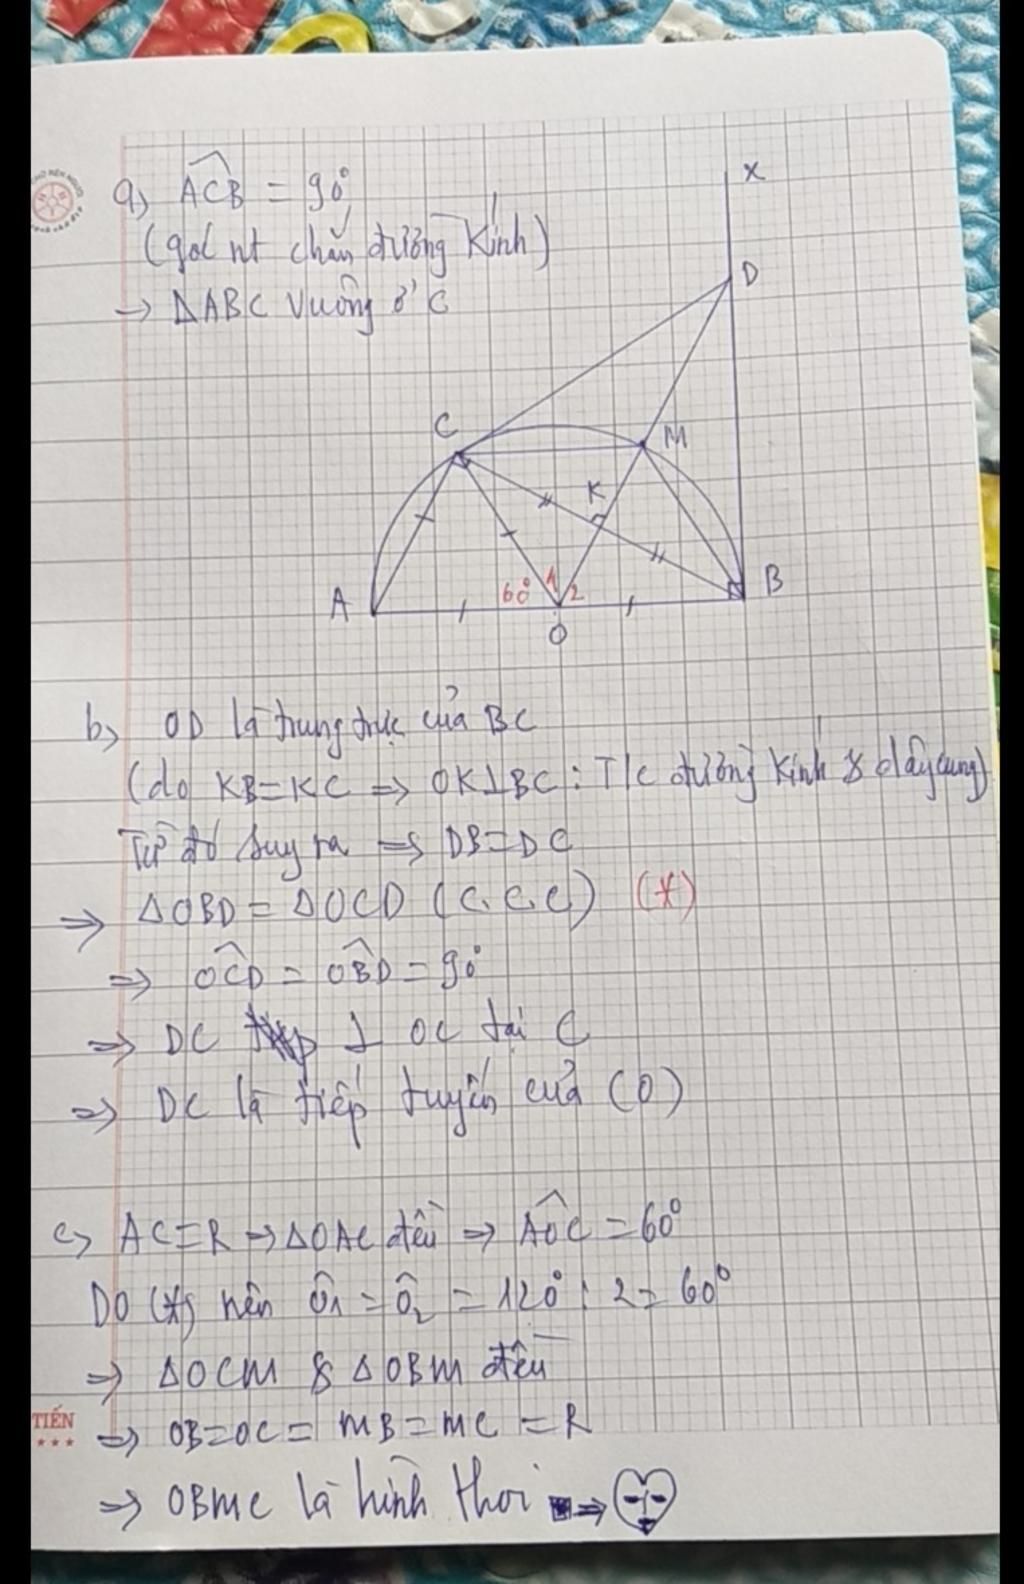 a) ACB = 90°
(góc nt chắn đường kính)
→ ΔABC vuông ở C
x
D
C
M
K
A
60°
1
2
B
O
b) OD là trung trực của BC
(do KB=KC => OK⊥BC: T/c đường kính & dây cung)
Từ đó suy ra => DB=DC
=> ΔOBD = ΔOCD (c.c.c) (*)
=> OCD = OBD = 90°
=> DC ⊥ OC tại C
=> DC là tiếp tuyến của (O)
c) AC=R → ΔOAC đều => AOC = 60°
Do (*) nên Ô1 = Ô2 = 120° : 2 = 60°
=> ΔOCM & ΔOBM đều
TIẾN
=> OB=OC = MB=MC = R
=> OBMC là hình thoi =>